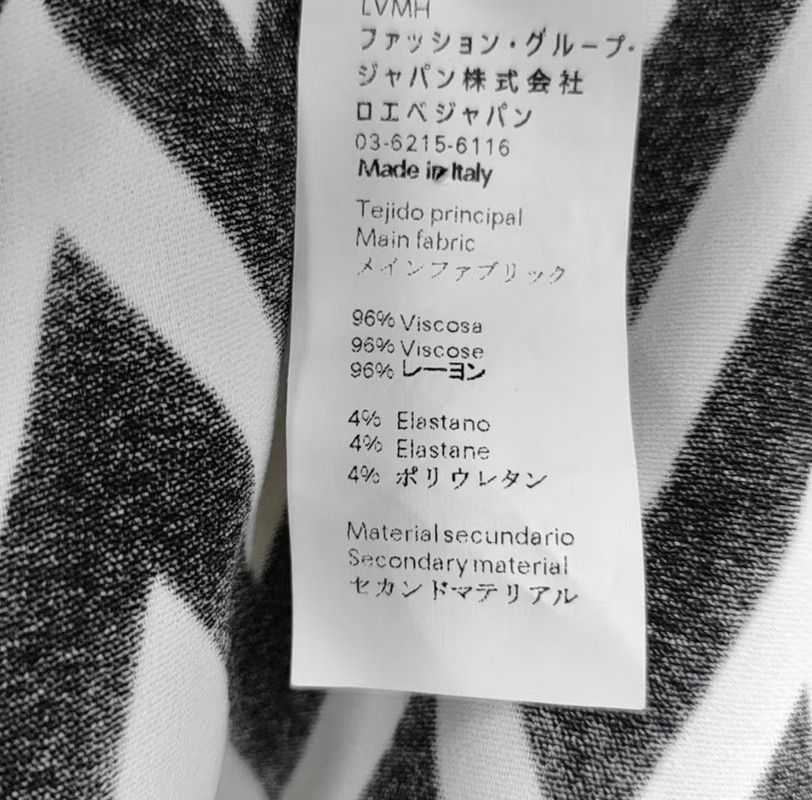 LVMH
ファッション・グループ・
ジャパン株式会社
ロエベジャパン
03-6215-6116
Made in Italy
Tejido principal
Main fabric
メインファブリック
96% Viscosa
96% Viscose
96% レーヨン
4% Elastano
4% Elastane
4% ポリウレタン
Material secundario
Secondary material
セカンドマテリアル